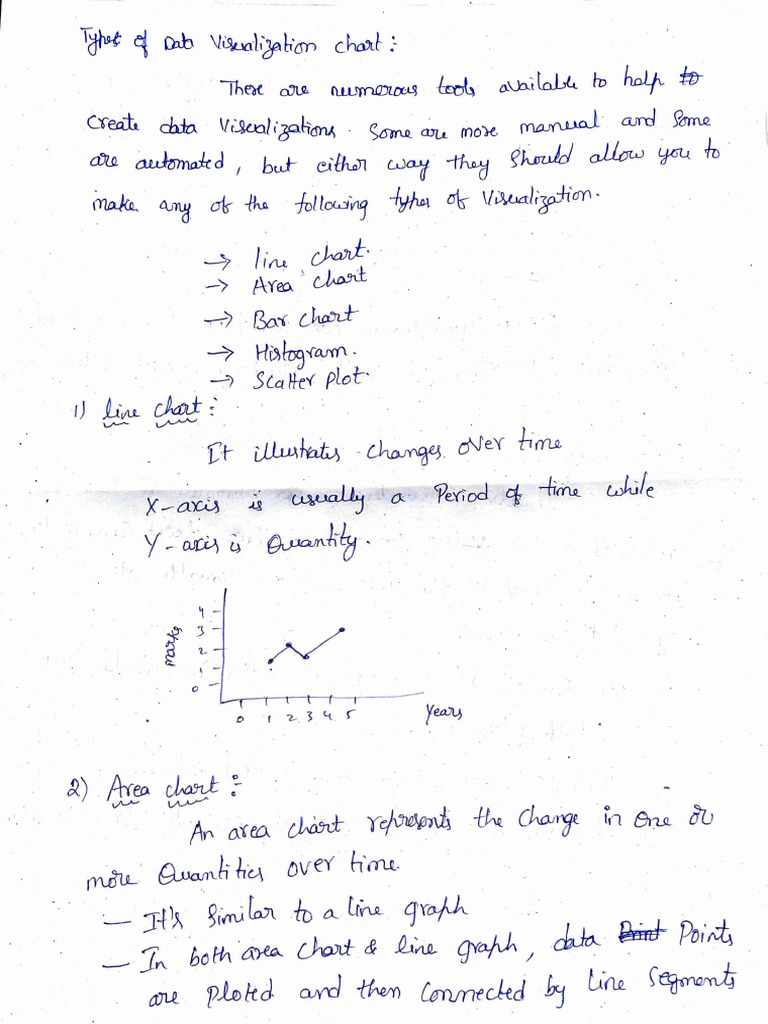 Types of Data Visualization chart :
There are numerous tools available to help to
create data Visualizations. Some are more manual and some
are automated, but either way they should allow you to
make any of the following types of Visualization.
→ line chart.
→ Area chart
→ Bar chart
→ Histogram.
→ Scatter plot.
1) line chart :
It illustrates changes over time
X-axis is usually a Period of time while
Y-axis is Quantity.
4
3
2
1
0
marks
0 1 2 3 4 5
Years
2) Area chart :
An area chart represents the change in one or
more Quantities over time.
— It's similar to a line graph
— In both area chart & line graph, data Point Points
are Ploted and then connected by line segments